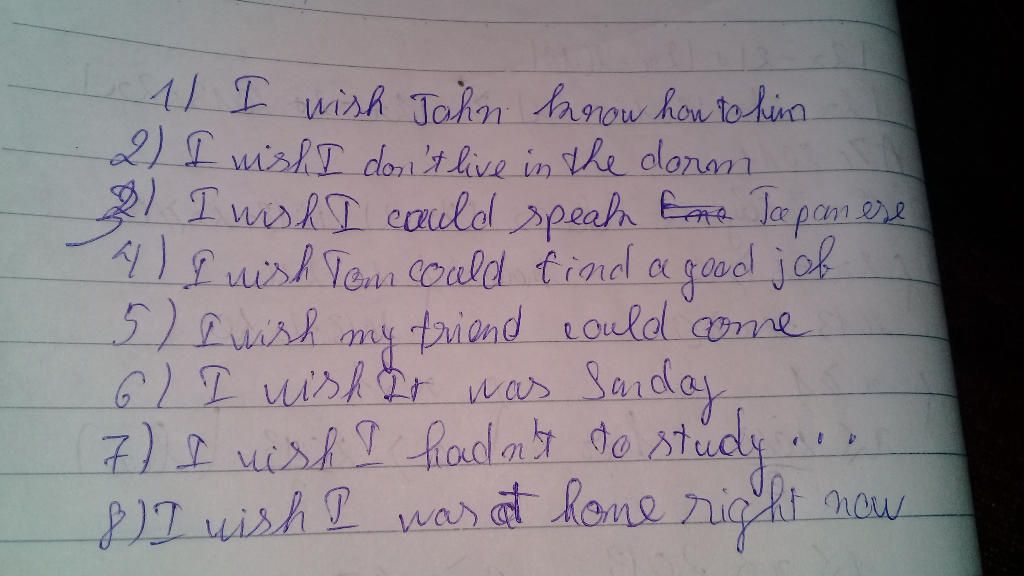 1) I wish John know how to him
2) I wish I don't live in the dorm
3) I wish I could speak Japanese
4) I wish Tom could find a good job
5) I wish my friend could come
6) I wish It was Sunday
7) I wish I hadn't to study ...
8) I wish I was at home right now